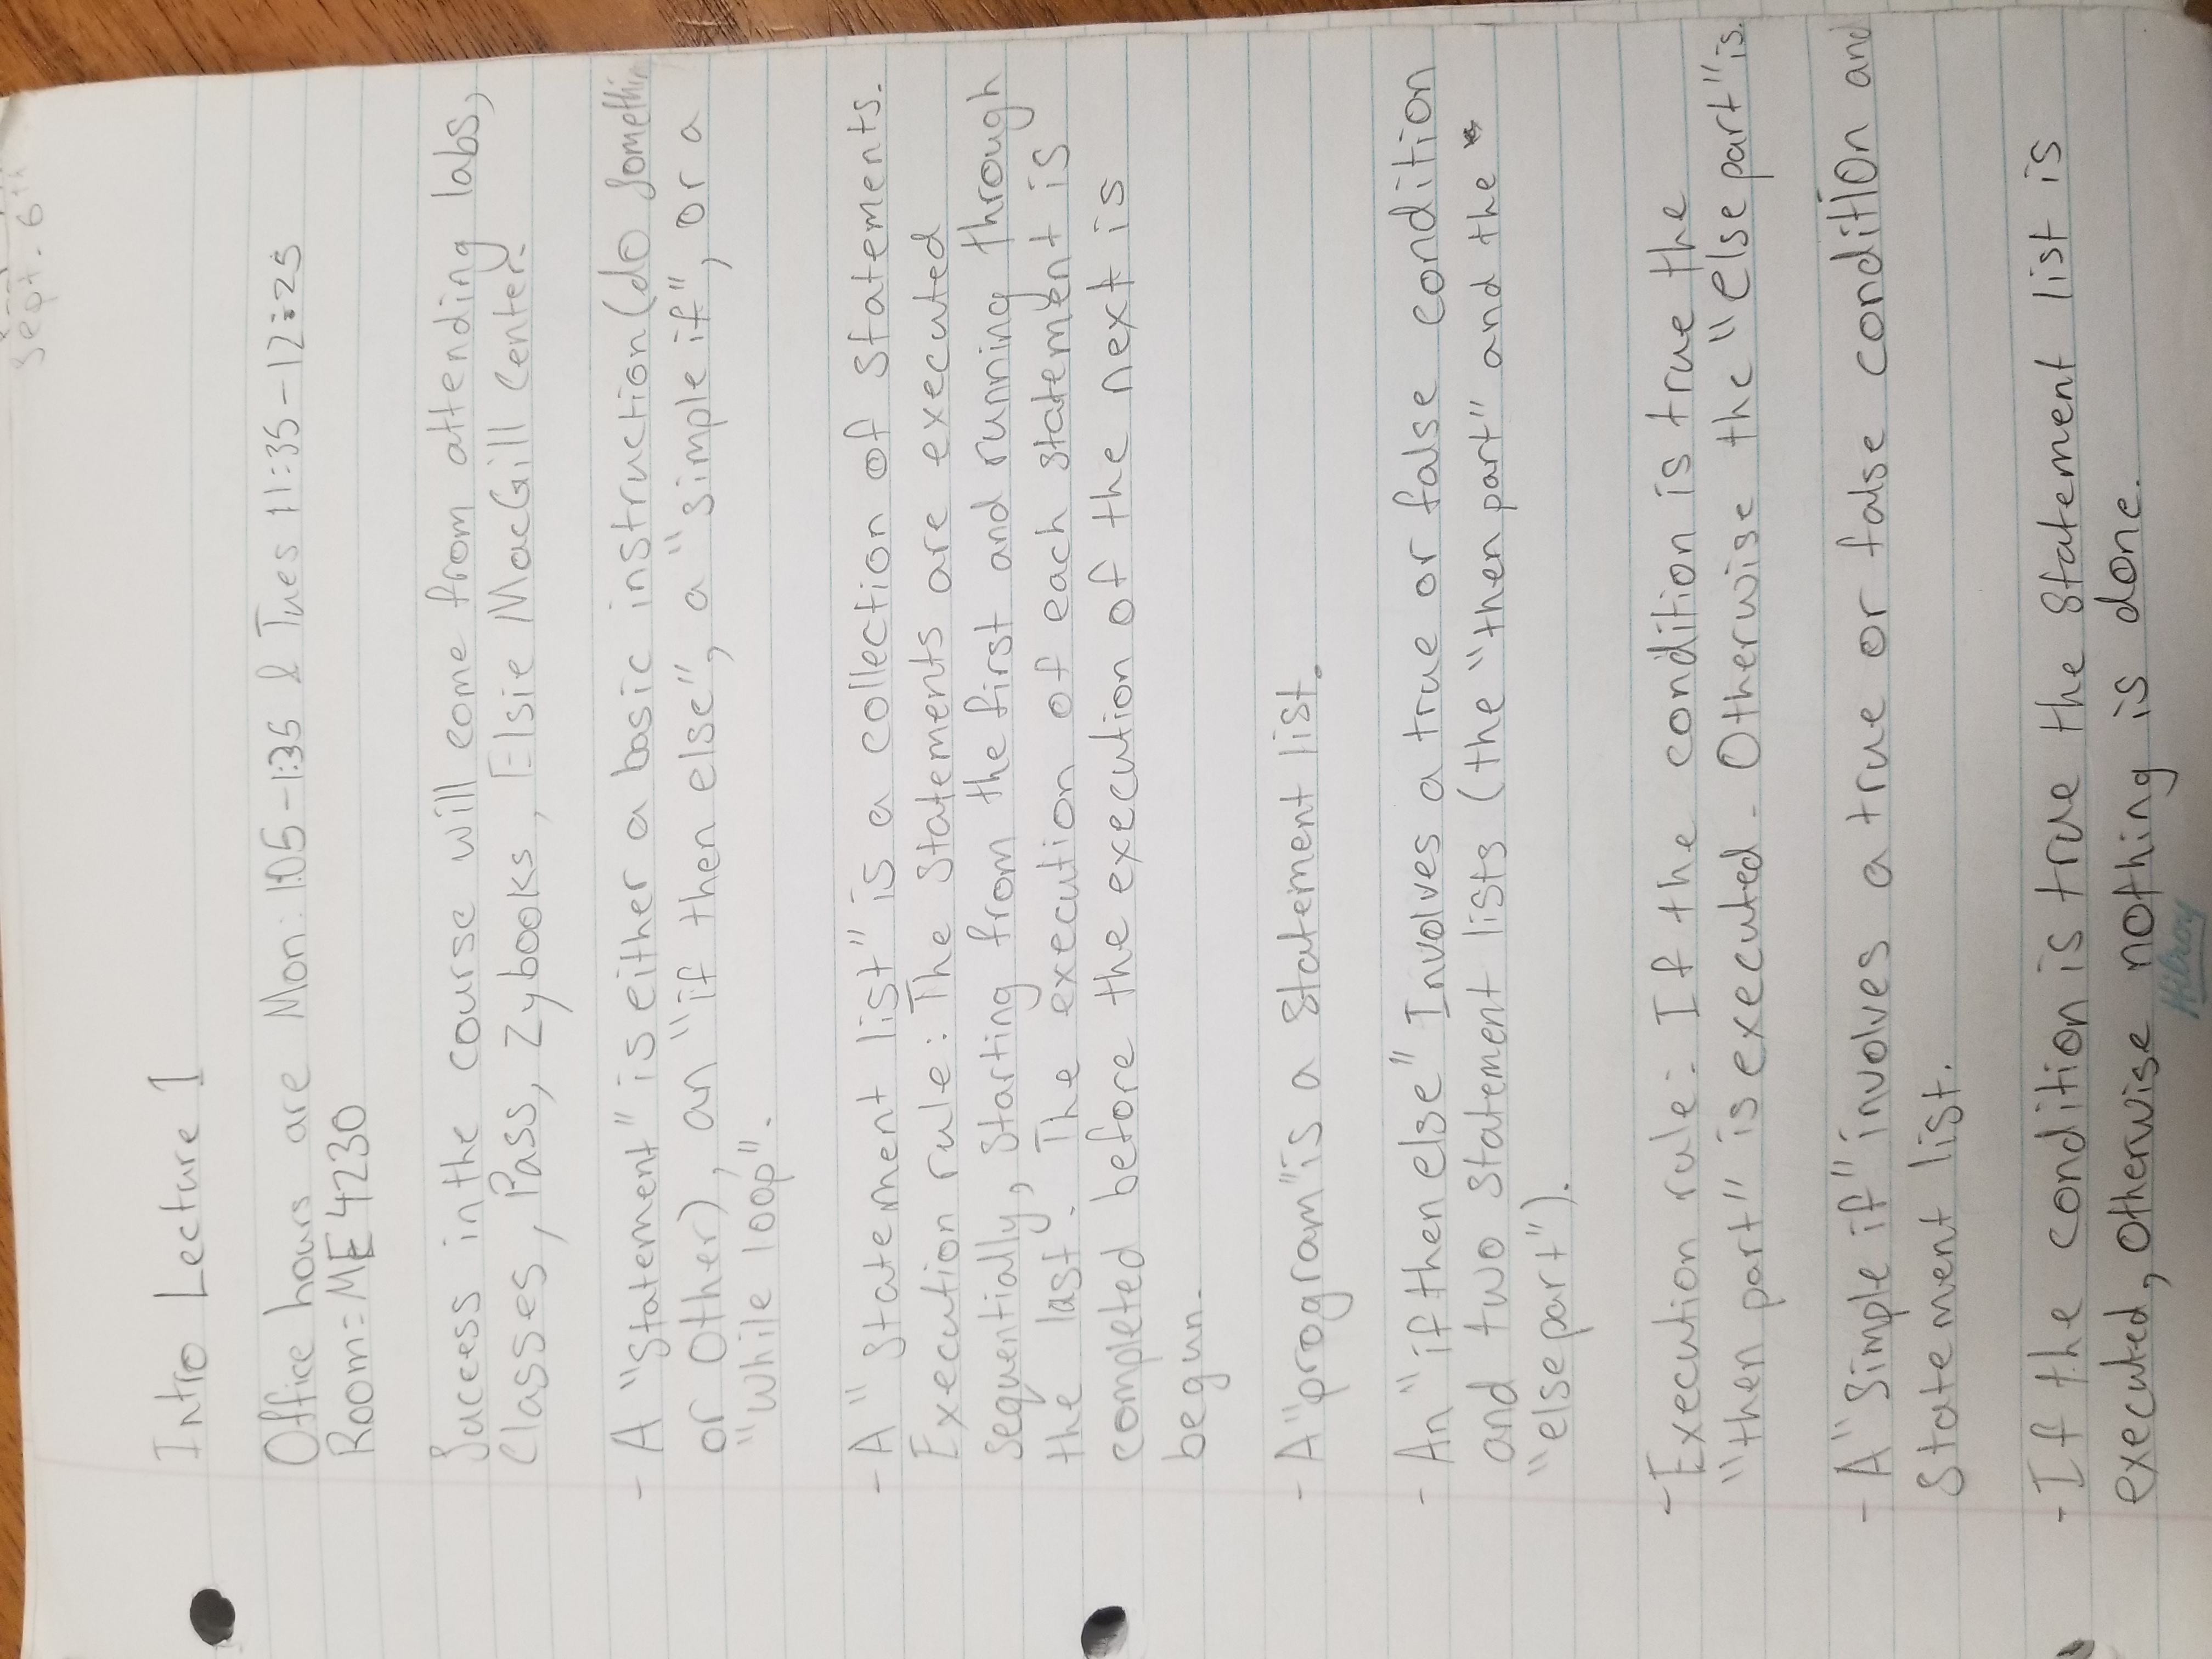 Sept. 6th
Intro Lecture 1
Office hours are Mon: 1:05-1:35 & Tues 11:35-12:25
Room: ME4230
Success in the course will come from attending labs,
Classes, Pass, Zybooks, Elsie MacGill Center.
- A "Statement" is either a basic instruction (do something
or Other), an "if then else", a "simple if", or a
"while loop".
- A "statement list" is a collection of statements.
Execution rule: The statements are executed
sequentially, starting from the first and running through
the last. The execution of each statement is
completed before the execution of the next is
begun.
- A "program" is a statement list.
- An "if then else" Involves a true or false condition
and two statement lists (the "then part" and the
"else part").
- Execution rule: If the condition is true the
"then part" is executed. Otherwise the "else part" is.
- A "simple if" involves a true or false condition and
Statement list.
- If the condition is true the statement list is
executed, otherwise nothing is done.
Hilroy